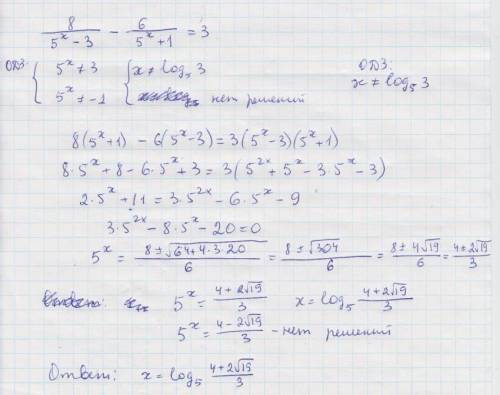 8/(5^x - 3) - 6/(5^x + 1) = 3
ОДЗ: { 5^x ≠ 3 { x ≠ log₅ 3 ОДЗ:
5^x ≠ -1 нет решений x ≠ log₅ 3
8(5^x+1) - 6(5^x-3) = 3(5^x-3)(5^x+1)
8·5^x + 8 - 6·5^x + 3 = 3(5^2x + 5^x - 3·5^x - 3)
2·5^x + 11 = 3·5^2x - 6·5^x - 9
3·5^2x - 8·5^x - 20 = 0
5^x = (8 ± √(64+4·3·20))/6 = (8 ± √304)/6 = (8 ± 4√19)/6 = (4 ± 2√19)/3
5^x = (4+2√19)/3 x = log₅ (4+2√19)/3
5^x = (4-2√19)/3 - нет решений
Ответ: x = log₅ (4+2√19)/3